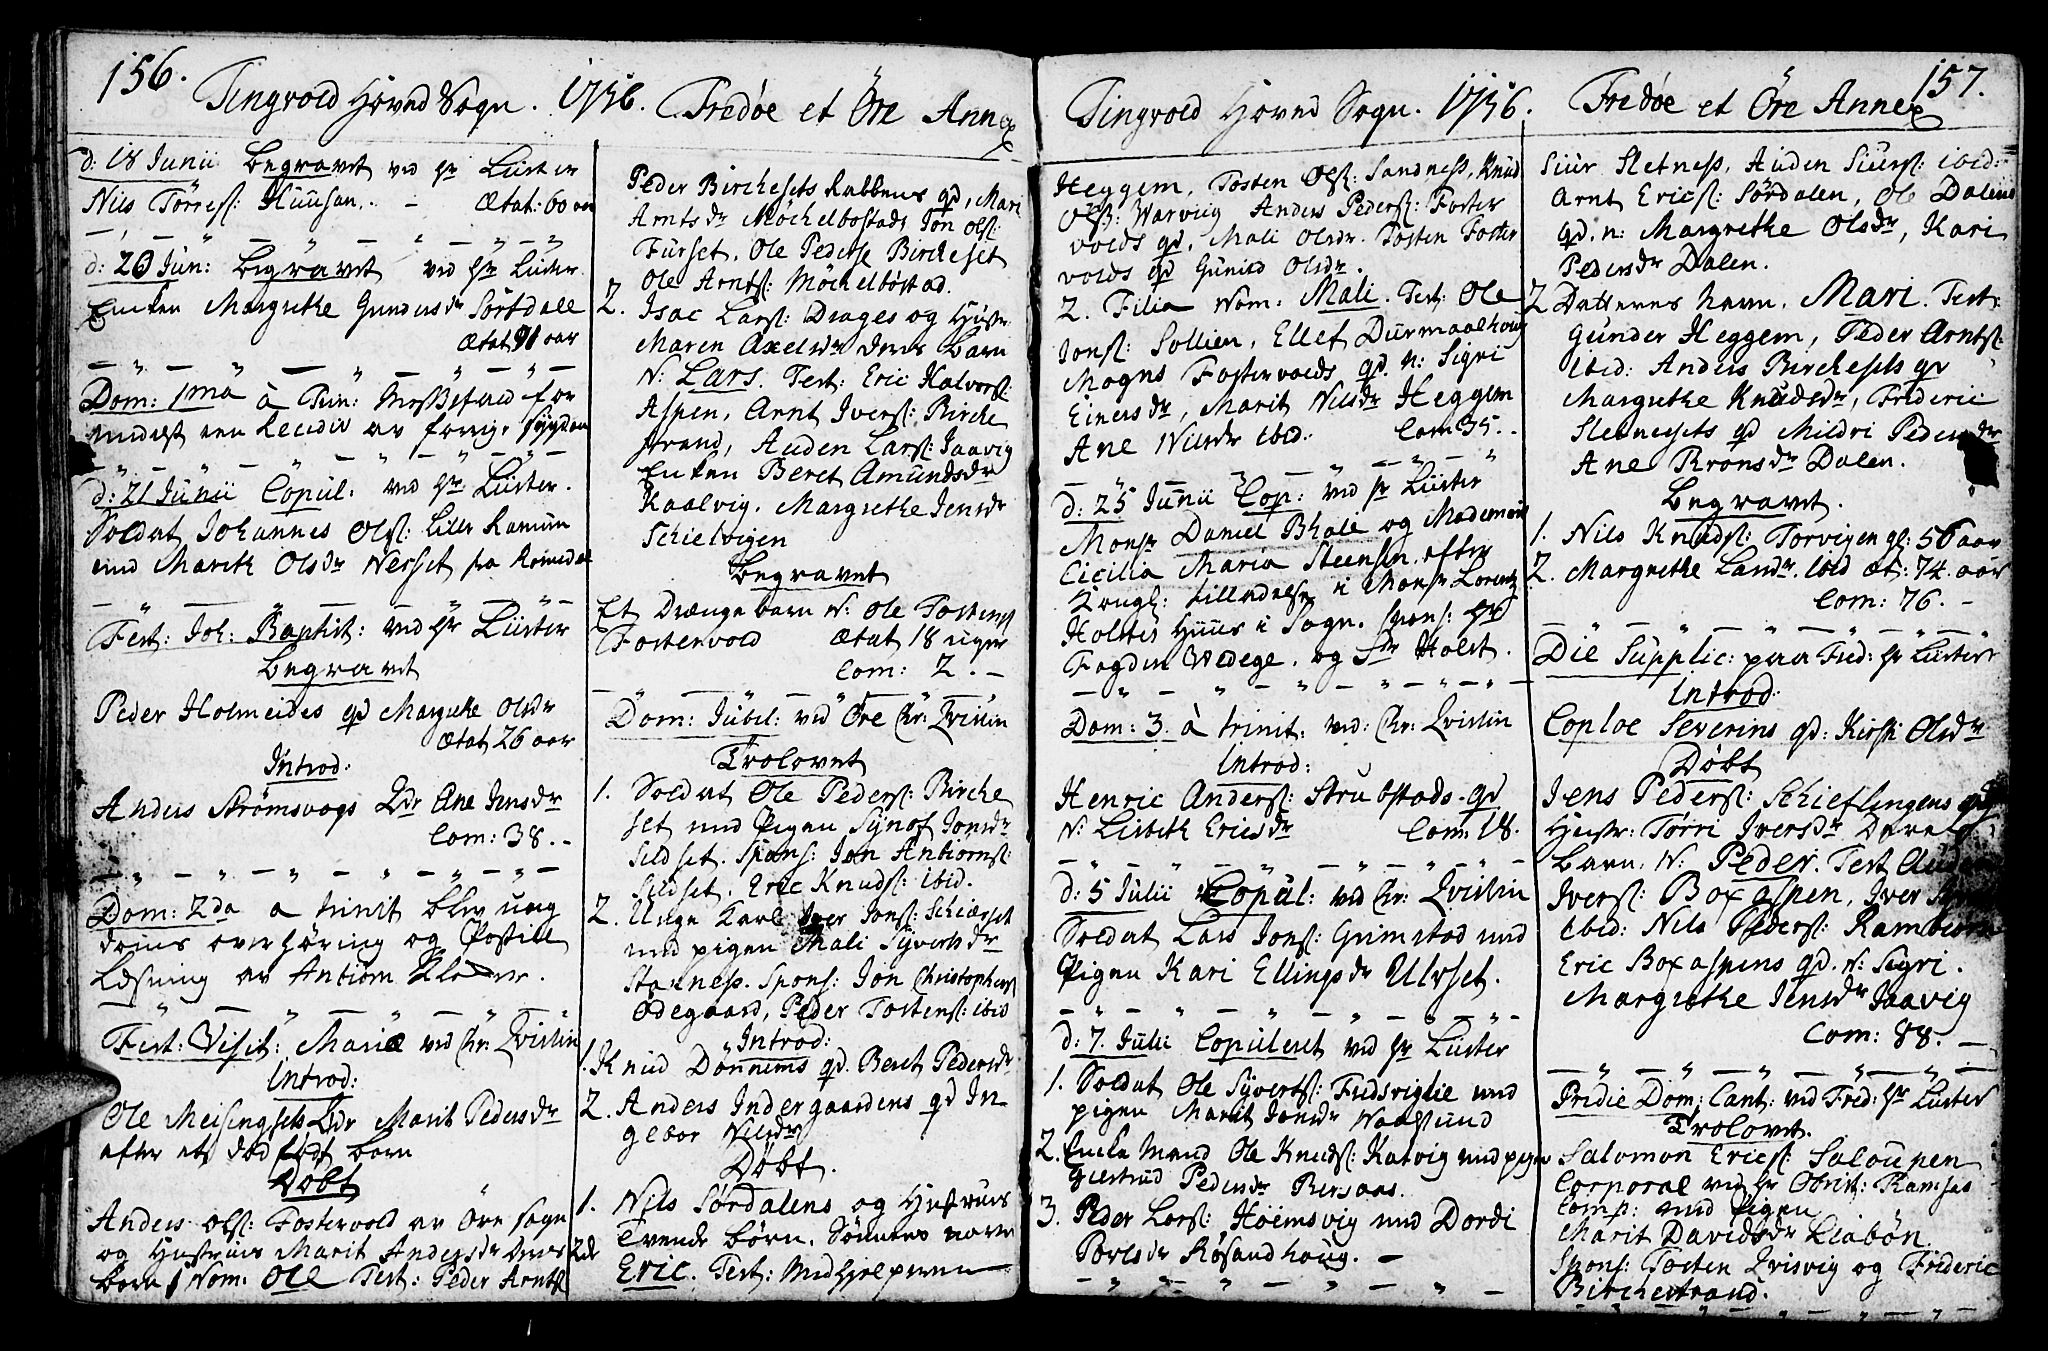 156.
Tingvold Hoved Sogn. 1756. Fredøe et Öre Annex
d: 18 Junii Begravet ved Hr Lüster
Nils Törres: Huusan. - Ætat: 60 aar
d: 20 Jun: Begravet ved Hr Lüster
Enken Margrethe Gundersdr Sörtdall
Ætat 91 aar
Dom: 1ma à Trin: Messefald for
medelst een Recidiv av forrige Sygdom
d: 21 Junii Copul: ved Hr Lüster.
Soldat Johannes Ols: Lille Ramüm
med Marith Olsdr Nesset fra Romsdal
Fest: Joh: Baptist: ved Hr Lüster
Begravet
Peder Holmeides qd Margrethe Olsdr
Ætat 26 aar
Introd:
Anders Strømsvogs Qdr Ane Jensdr
Com: 38. -
Dom: 2da a trinit blev ung
doms overhøring og Postill
Læsning av Antiorn Klocker.
Fest: Visit: Mariæ ved Chr: Qvislin
Introd:
Ole Meisingsets Qdr Marit Pedersdr
efter et død født barn
Døbt
Anders Ols: Fostervold av Öre sogn
og Hustrues Marit Andersdr deres
barn Nom: Ole Test: Peder Arnts:
Peder Birchesets Rabbens qd, Mari
Arntsdr Möchelbostad, Jon Ols:
Furset, Ole Peders: Bircheset
Ole Arnts: Möchelböstad.
2. Isac Lars: Drages og Hustr:
Maren Axelsdr deres barn
N: Lars. Test: Eric Halvors:
Aspen, Arnt Ivers: Birche
strand, Auden Lars: Jaavig
Enken Beret Amundsdr
Kaalvig, Margrethe Jensdr
Schielvigen
Begravet
Et Drænge barn N: Ole Tostens:
Fostervold Ætat 18 uger
Com: 2. -
Dom: Jubil: ved Öre Chr: Qvislin
Trolovet
1. Soldat Ole Peders: Birche
set med Pigen Synof Jonsdr
Sildset. Spons: Jon Antiorns:
Sildset, Eric Knuds: ibid.
2. Unge Karl Iver Jons: Schiærset
med pigen Mali Syvertsdr
Starness. Spons: Jon Christophers:
Ödegaard, Peder Tostens: ibid
Introd:
1. Knud Dønnems qd. Beret Pedersdr
2. Anders Indergaardens qd In-
gebor Nilsdr
Døbt.
1. Nils Sördalens og Hustrues
tvende börn. Sönnens navn
Eric. Test: Medhjelperen
157.
Tingvold Hoved Sogn. 1756. Fredøe et Öre Annex
Heggem, Tosten Ols: Sandness, Knud
Ols: Warviig Anders Peders: Foster
volds qd, Mali Olsdr. Tosten Foster
volds qd Guniid Olsdr.
2. Filia Nom: Mali. Test: Ole
Jons: Sollien, Ellef Durmaalhoug
Mogns Fostervolds qd. n: Sigri
Einersdr, Marit Nilsdr Heggem
Ane Nilsdr ibid: Com 35. -
d: 25 Junii Cop: ved Hr Lüster
Monsr Daniel Bhaie og Mademois
Cicilia Maria Steensen efter
Kongl: tilladelse i Monsr Lorentz
Holstes Huus i Sogn. Spons: Hr
Fogden Wedege, og Sr Holst.
Dom: 3. à trinit: ved: Chr: Qvislin
Introd:
Henric Anders: Strubstads qd
N: Lisbeth Ericsdr Com: 18.
d: 5 Julii Copul: ved Chr: Qvislin
Soldat Lars Jons: Grimstad med
Pigen Kari Ellingsdr Ulvset.
d: 7 Julii Copuleret ved Hr Lüster
1. Soldat Ole Syverts: Fudsviglie med
pigen Marit Jonsdr Naassund
2. Enke mand Ole Knuds: Katvig med pigen
Giertrud Pedersdr Bersaas.
3. Peder Lars: Höimsvig med Dordi
Povlsdr Røsandhoug. -
Siur Sletness, Auden Siurs: ibid:
Arnt Erics: Sördalen, Ole Dalens
qd. n: Margrethe Olsdr, Kari
Pedersdr Dalen.
2 Datterens navn, Mari. Test:
Gunder Heggem, Peder Arnts:
ibid: Anders Birchesets qd
Margrethe Knudsdr, Frideric
Sletnesets qd Mildri Pedersdr
Ane Bronsdr Dalen.
Begravet.
1. Nils Knuds: Torvigen gl: 56 aar
2. Margrethe Landr. ibid æt: 74. aar
Com: 76. -
Die Supplic: paa Fred: Hr Lüster
Introd:
Coploe Severins qd: Kirsti Olsdr
Døbt
Jens Peders: Schieflingens og
Hustr: Tørri Iversdr Deres
barn, N: Peder. Test Auden
Ivers: Boxaspen, Iver
ibid: Nils Peders: Rambiörn
Eric Boxaspens qd. N: Sigri.
Margrethe Jensdr Jaavig
Com: 88. -
Pridie Dom: Cant: ved Fred: Hr Lüster
Trolovet.
Salomon Erics: Saloupen
Corporal ved Hr Obrist: Ramses
Comp: med Pigen
Marit Davidsdr Leabön.
Spons: Tosten Qvisvig og Frideric
Birchestrand.